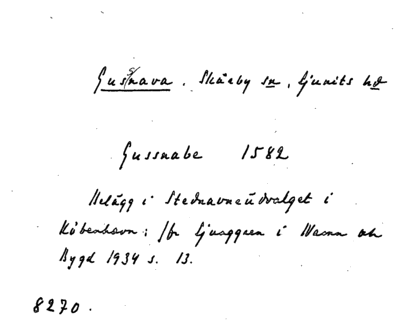 Gussnava. Skårby sn, Ljunits hd
Gussnabe 1582
Belägg i Stednavneudvalget i
København; jfr Ljunggren i Namn och
Bygd 1934 s. 13.
8270.